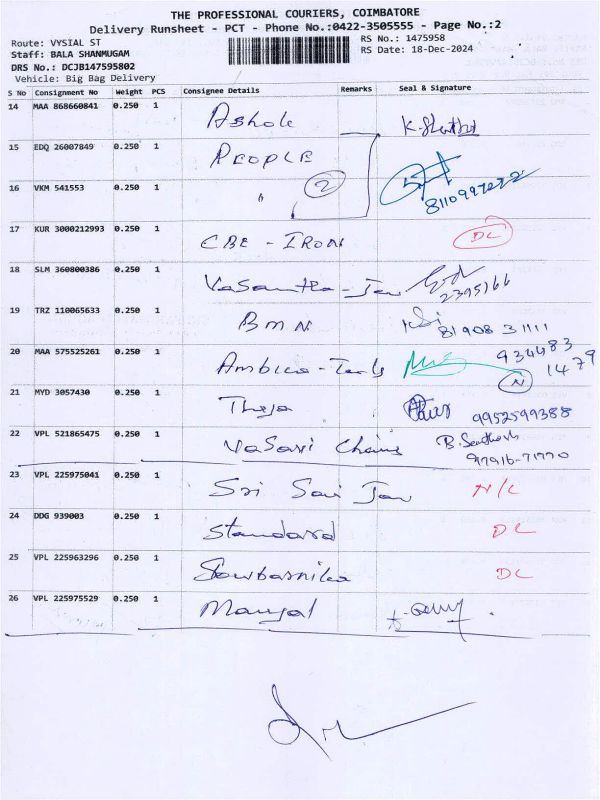 THE PROFESSIONAL COURIERS, COIMBATORE
Delivery Runsheet - PCT - Phone No.:0422-3505555 - Page No.:2
Route: VYSIAL ST
RS No.: 1475958
Staff: BALA SHANMUGAM
RS Date: 18-Dec-2024
DRS No.: DCJB147595802
Vehicle: Big Bag Delivery
S No Consignment No Weight PCS Consignee Details Remarks Seal & Signature
14 MAA 868660841 0.250 1 Ashok
15 EDQ 26007849 0.250 1 PEOPLE
16 VKM 541553 0.250 1 " 2 8110997272
17 KUR 3000212993 0.250 1 CBE - IRON DL
18 SLM 360800386 0.250 1 Vasantha - Jew 2395166
19 TRZ 110065633 0.250 1 BMN 81908 31111
20 MAA 575525261 0.250 1 Ambica - 934483
N 1479
21 MYD 3057430 0.250 1 Theja 9952599388
22 VPL 521865475 0.250 1 Vasavi Chains B. Santhosh
97916-71770
23 VPL 225975041 0.250 1 Sri Sai Jew N/C
24 DDG 939003 0.250 1 Standard DL
25 VPL 225963296 0.250 1 Sowbarnika DL
26 VPL 225975529 0.250 1 Mangal